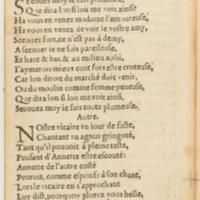 Secouez moy je suis plumeuse,
Que dira lon si lon me voit ainsi?
Ha vous en venez madame l'amoureuse,
Ha vous en venez de voir le vostre amy,
Secouer fort, ce n'est pas à demy,
A secouer je ne suis pareseuse,
Et haut & bas, & au milieu aussi,
J'aymerois mieux cent fois estre croteuse,
Car lon diroit du marché doit venir,
Ou du moulin comme femme peneuse,
Que dira lon si lon me voit ainsi,
Secouez moy je suis toute plumeuse.
Autre.
NOstre vicaire un jour de feste,
Chantant un agnus gringoté,
Tant qu'il pouvoit à pleine teste,
Pensant d'Annette estre escouté:
Annette de l'autre costé
Pleuroit, comme esprinse à son chant,
Lors le vicaire en s'approchant
Luy dist, pourquoy plorez vous belle,